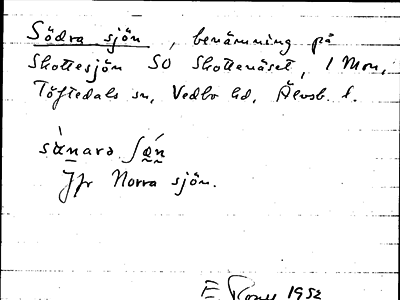 Södra sjön, benämning på
Skottesjön SO Skottenäset, 1 Mon,
Töftedals sn, Vedbo hd, Älvsb. l.
Jfr Norra sjön.
E 1952